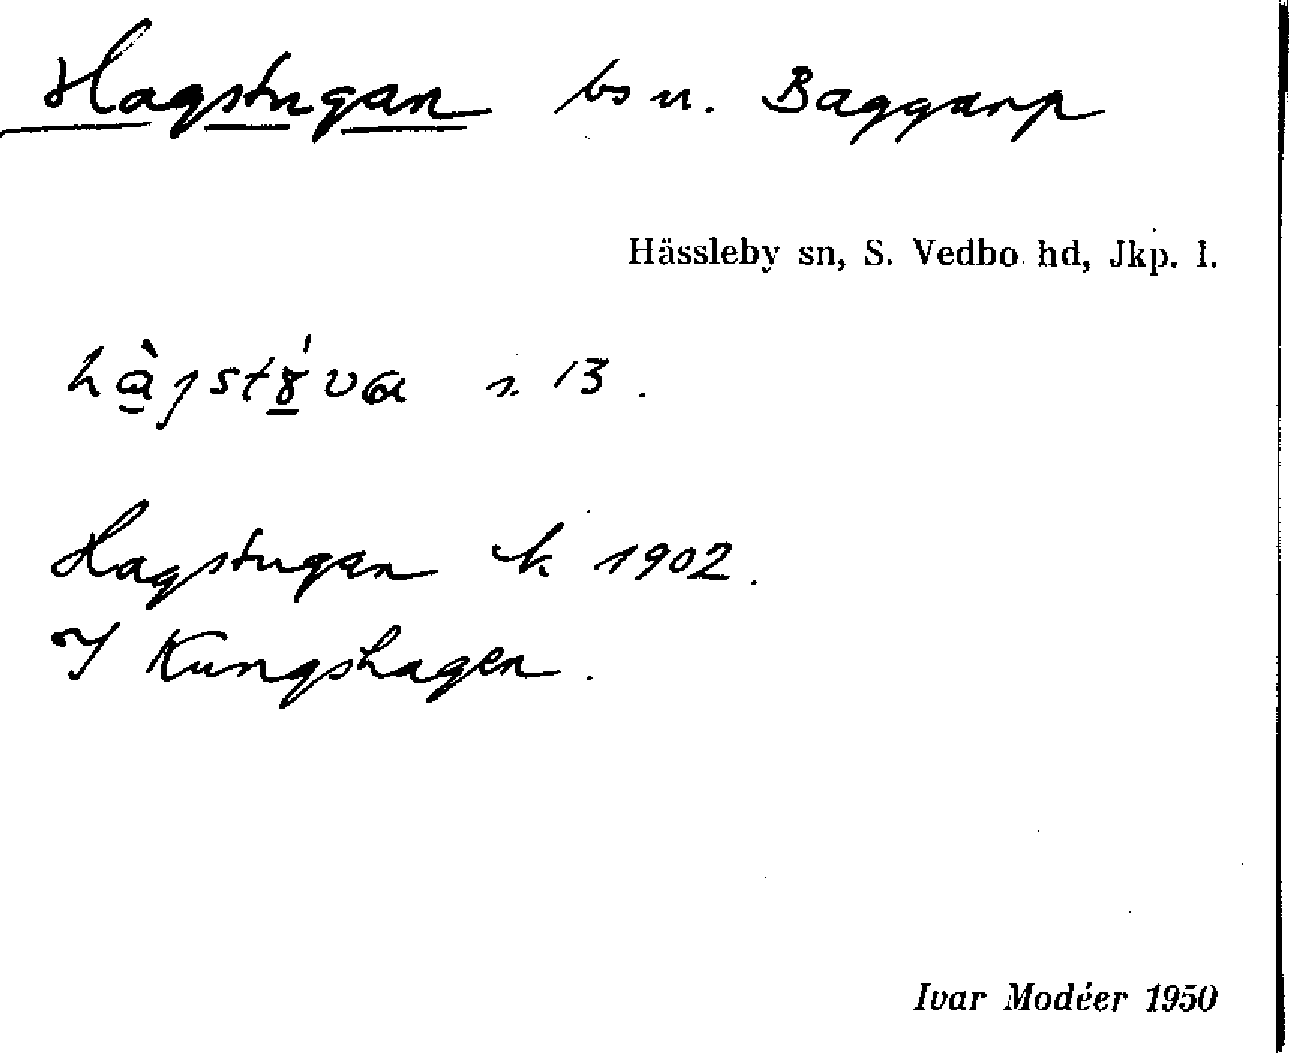 Hagstugan bs u. Baggarp
Hässleby sn, S. Vedbo hd, Jkp. l.
13.
Hagstugan k 1902.
I Kungshagen.
Ivar Modéer 1950